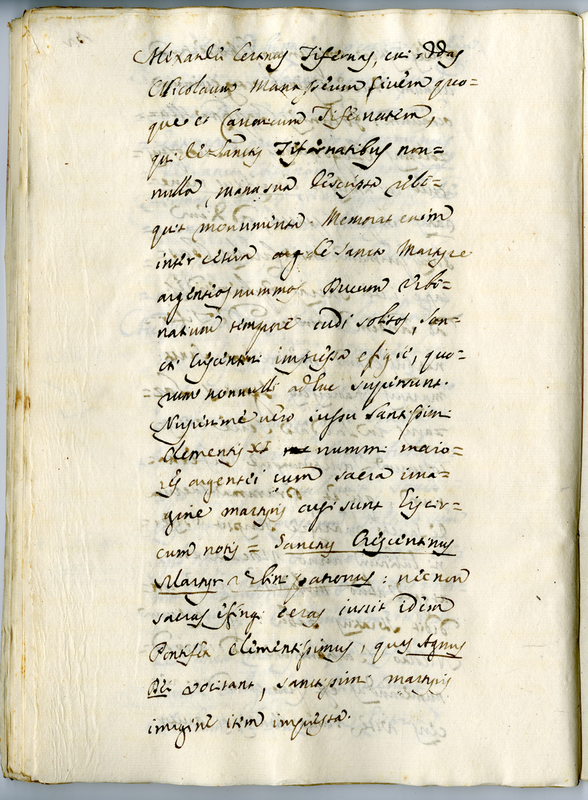 Alexander Certinus Tifernas, cui addas
Nicolaum Manassæum Civem quo=
que et Canonicum Tifernatem,
qui de Sanctis Tifernatibus non=
nulla, manu sua descripta reli=
quit monumenta. Memorat enim
inter cetera de Sancto Martyre
argenteos nummos Ducum Urbi=
natum tempore cudi solitos, San=
cti Crescentini impressa efigie, quo=
rum nonnulli adhuc supersunt.
Nuperrime vero iussu Santissimi
Clementis XI nummi maio=
res argentei cum sacra ima=
gine martyris cusi sunt
cum notis = Sanctus Crescentinus
Martyr Urbini patronus: necnon
sacras ceras iussit idem
Pontifex Clementissimus, quas Agnus
Dei vocitant, sanctissimi martyris
imagine item impressa.